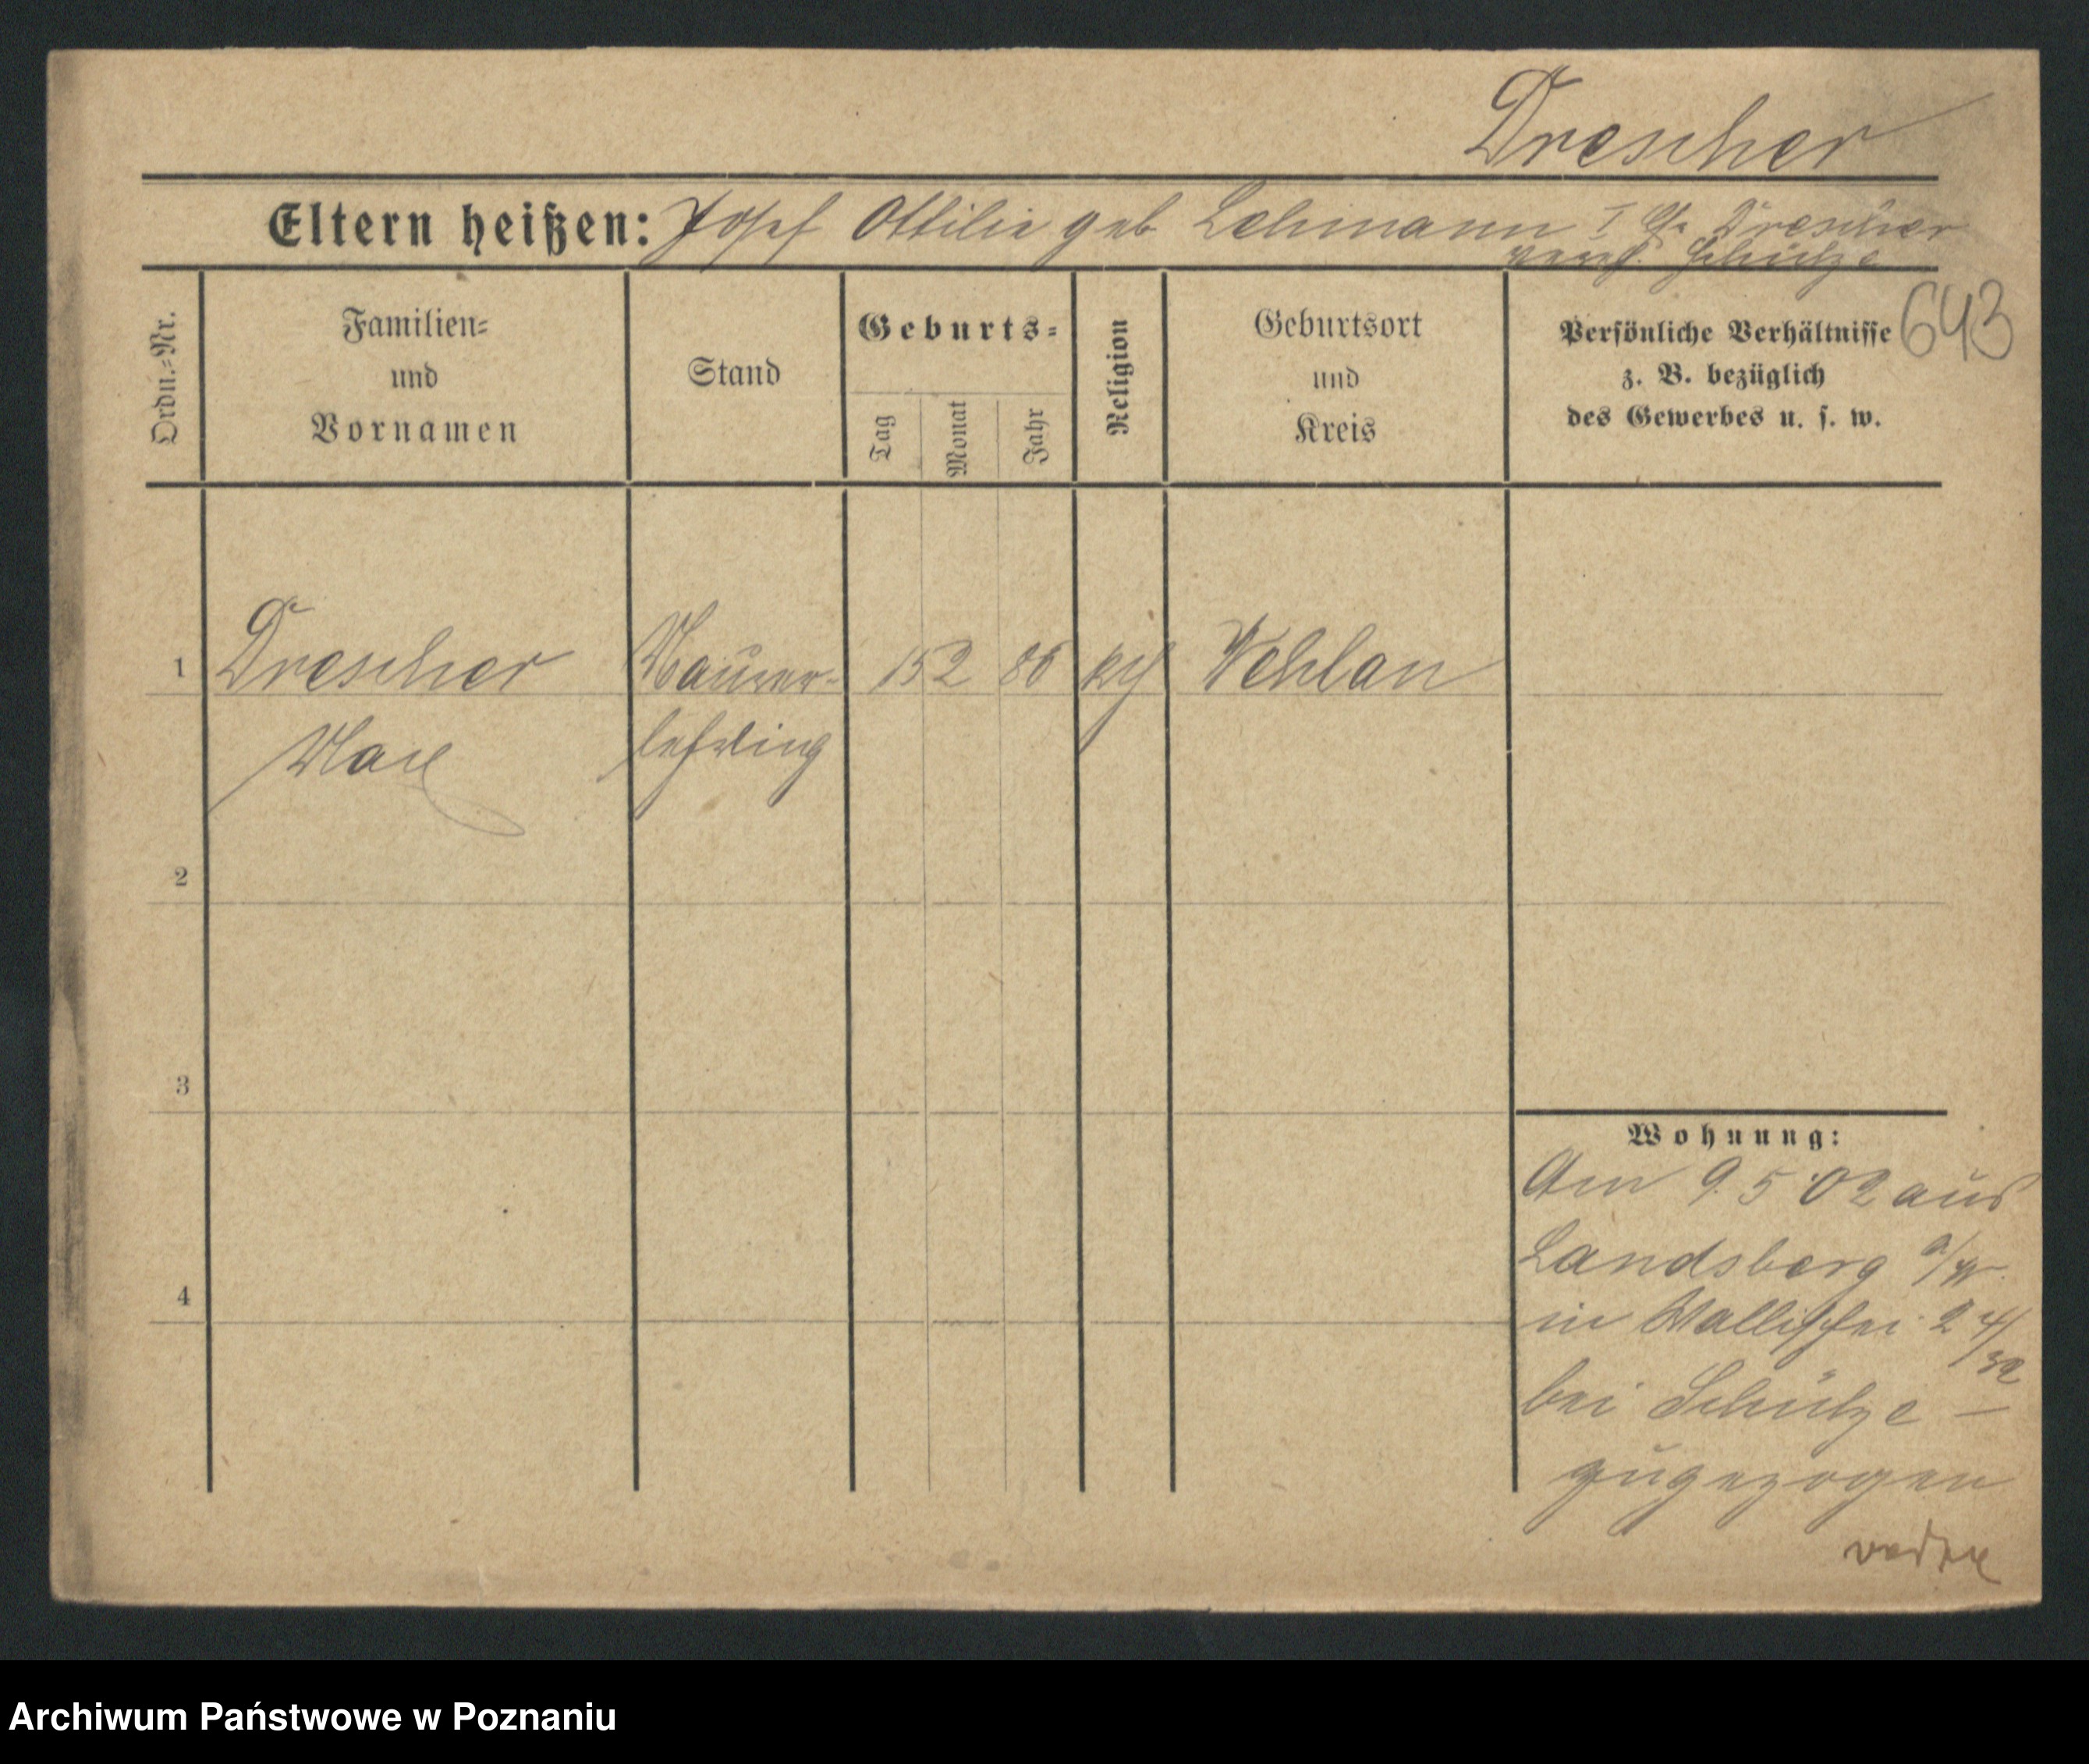 Drescher
Eltern heißen: Josef Ottilie geb Lehmann I Eh. Drescher
verw. Schulze
643
Ordn.-Nr.
Familien-
und
Vornamen
Stand
Geburts-
Tag
Monat
Jahr
Religion
Geburtsort
und
Kreis
Persönliche Verhältnisse
z. B. bezüglich
des Gewerbes u. s. w.
1 Drescher Maurer- 15 2 86 Wehlan
Max lehrling
2
3
4
Wohnung:
Am 9. 5 02 aus
Landsberg a/W.
in Wallischei 2 4/32
bei Schulze –
zugezogen
Archiwum Państwowe w Poznaniu